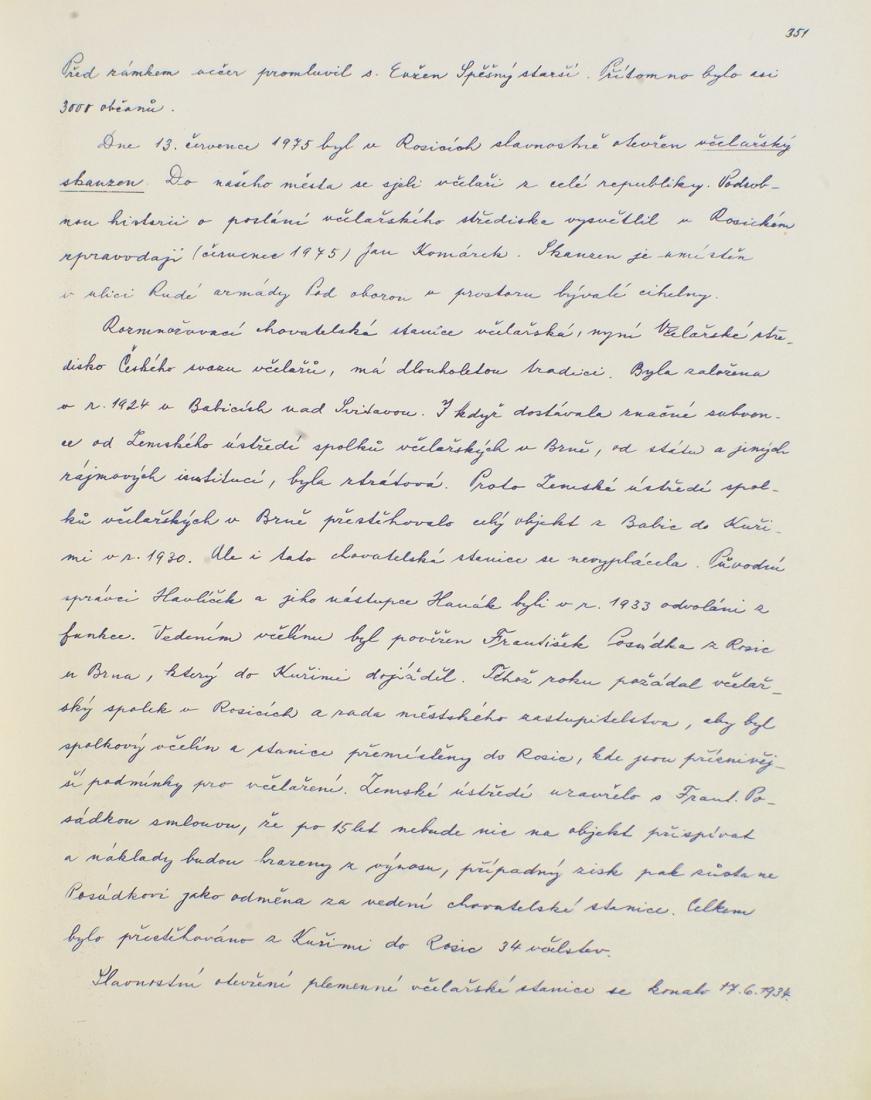 351
Před zámkem večer promluvil s. Evžen Spěšný starší. Přítomno bylo asi
3000 občanů.
Dne 13. července 1975 byl v Rosicích slavnostně otevřen včelařský
skanzen. Do našeho města se sjeli včelaři z celé republiky. Podrob-
nou historii o poslání včelařského střediska vysvětlil v Rosickém
zpravodaji (červenec 1975) Jan Komárek. Skanzen je umístěn
v ulici Rudé armády Pod oborou v prostoru bývalé cihelny.
Rozmnožovací chovatelská stanice včelařská, nyní Včelařské stře-
disko Českého svazu včelařů, má dlouholetou tradici. Byla založena
v r. 1924 v Babicích nad Svitavou. I když dostávala značné subven-
ce od Zemského ústředí spolků včelařských v Brně, od státu a jiných
zájmových institucí, byla ztrátová. Proto Zemské ústředí spol-
ků včelařských v Brně přestěhovalo celý objekt z Babic do Kuři-
mi v r. 1930. Ale i tato chovatelská stanice se nevyplácela. Původní
správci Havlíček a jeho nástupce Hanák byli v r. 1933 odvoláni z
funkce. Vedením včelínu byl pověřen František Posádka z Rosic
u Brna, který do Kuřimi dojížděl. Téhož roku požádal včelař-
ský spolek v Rosicích a rada městského zastupitelstva, aby byl
spolkový včelín a stanice přemístěny do Rosic, kde jsou příznivěj-
ší podmínky pro včelaření. Zemské ústředí uzavřelo s Frant. Po-
sádkou smlouvu, že po 15 let nebude nic na objekt přispívat
a náklady budou hrazeny z výnosu, případný zisk pak zůstane
Posádkovi jako odměna za vedení chovatelské stanice. Celkem
bylo přestěhováno z Kuřimi do Rosic 34 včelstev.
Slavnostní otevření plemenné včelařské stanice se konalo 17.6.1934.